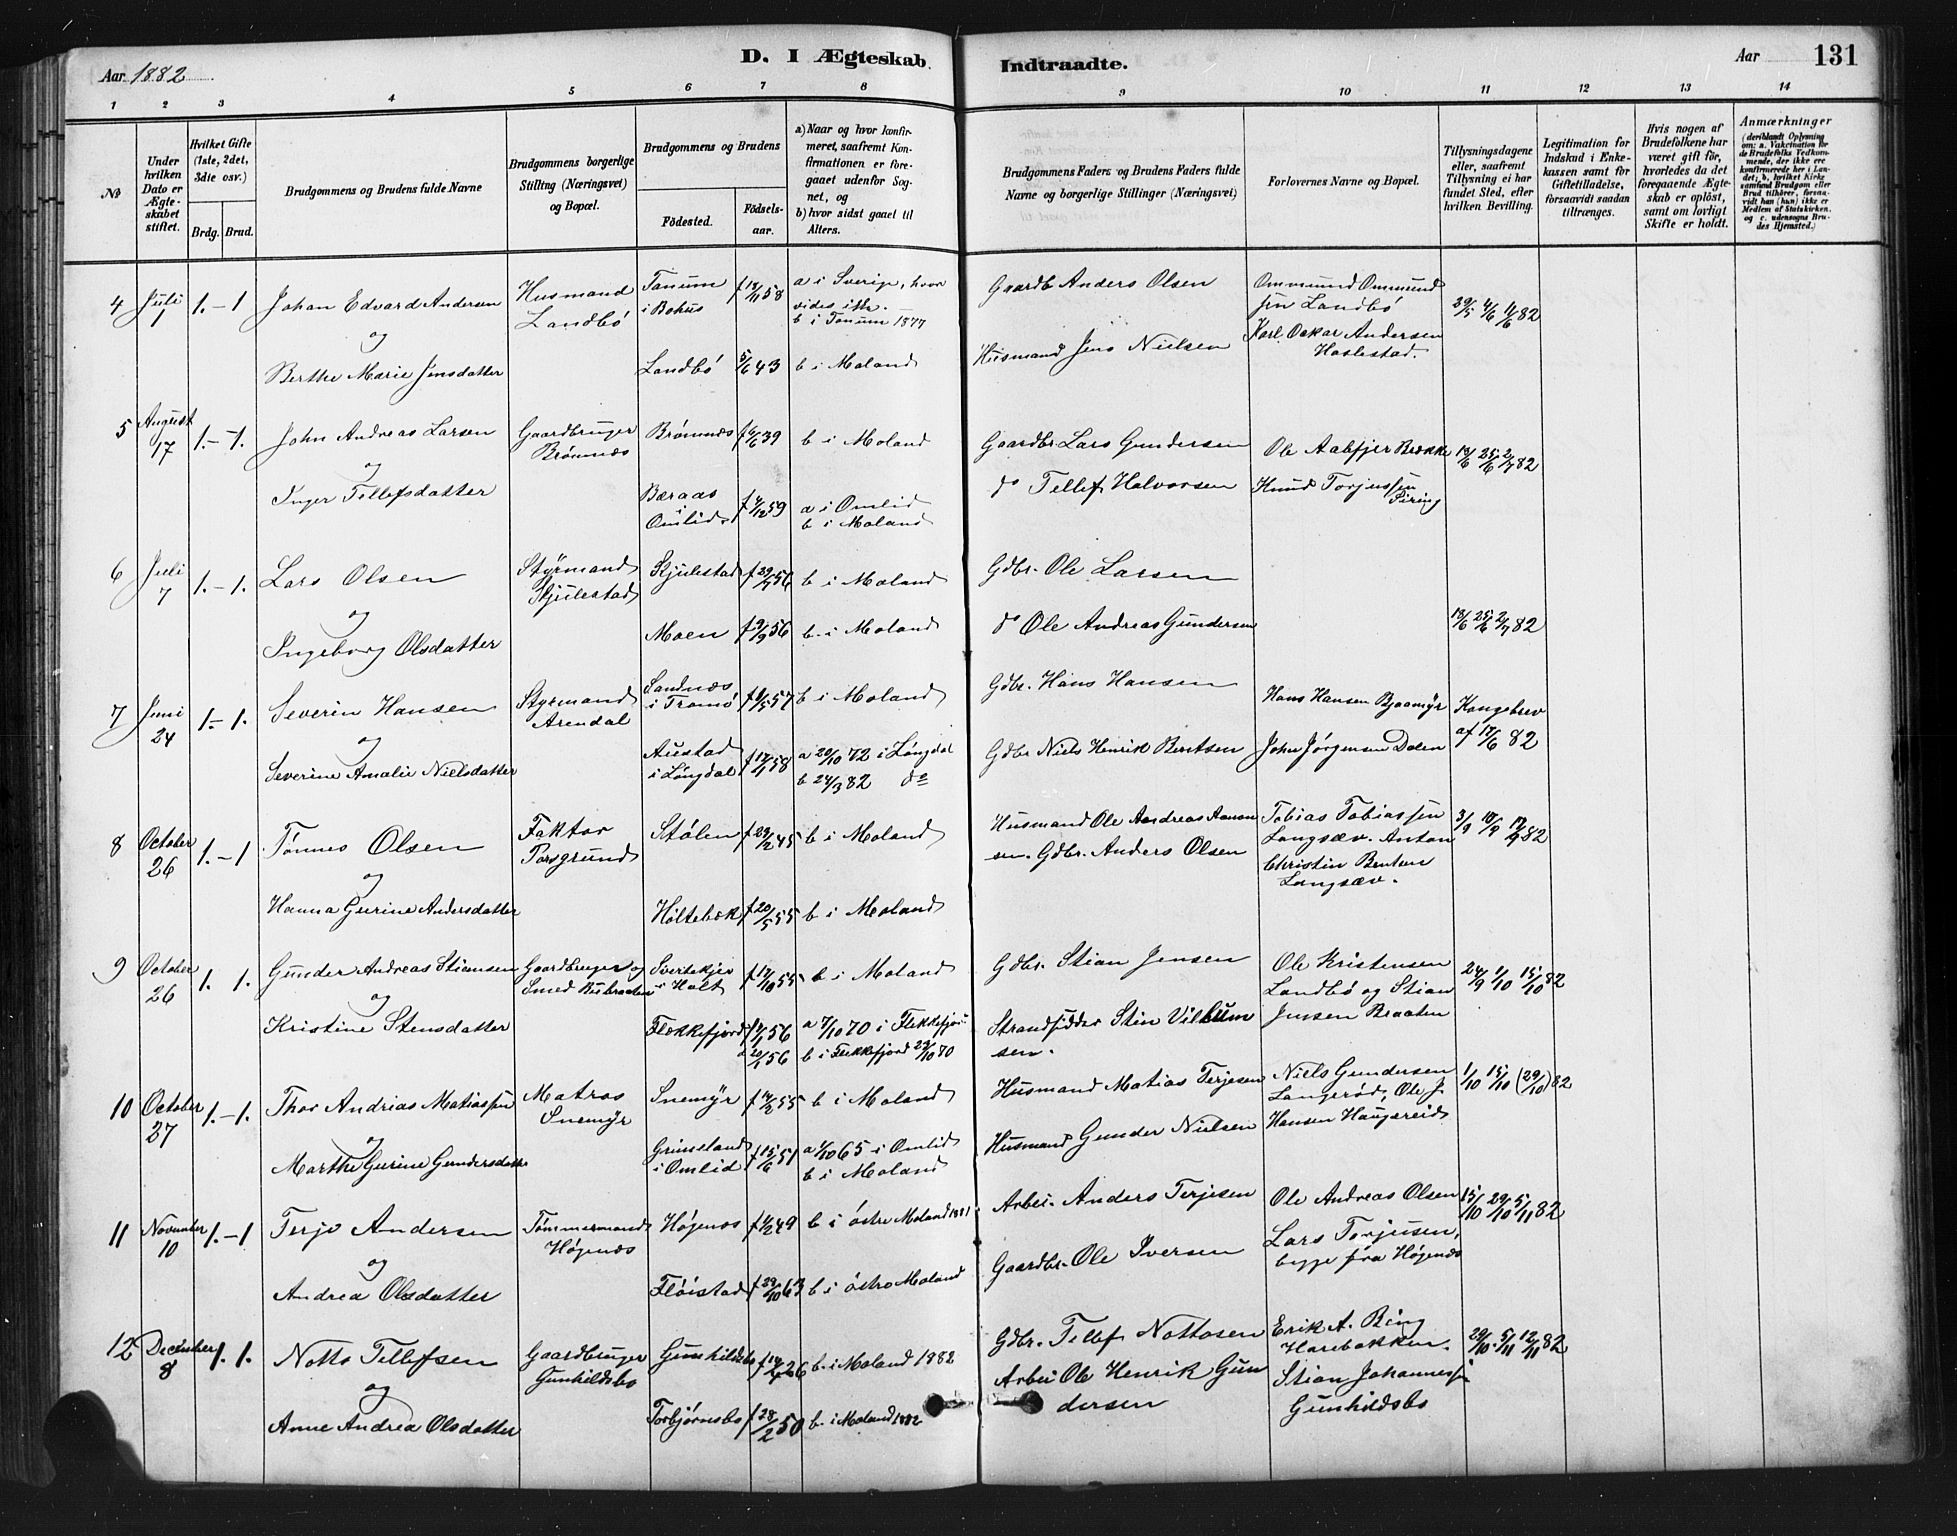 Aar 1882
D. I Ægteskab
Indtraadte.
Aar
131
1 2 3 4 5 6 7 8 9 10 11 12 13 14
No
Under hvilken Dato er Ægteskabet stiftet.
Hvilket Gifte (1ste, 2det, 3die osv.)
Brdg. Brud.
Brudgommens og Brudens fulde Navne
Brudgommens borgerlige Stilling (Næringsvei) og Bopæl.
Brudgommens og Brudens
Födested.
Födselsaar.
a) Naar og hvor konfirmeret, saafremt Konfirmationen er foregaaet udenfor Sognet, og
b) hvor sidst gaaet til Alters.
Brudgommens Faders og Brudens Faders fulde Navne og borgerlige Stillinger (Næringsvei)
Forlovernes Navne og Bopæl.
Tillysningsdagene eller, saafremt Tillysning ei har fundet Sted, efter hvilken Bevilling.
Legitimation for Indskud i Enkekassen samt for Giftetilladelse, forsaavidt saadan tiltrænges.
Hvis nogen af Brudefolkene har været gift för, hvorledes da det foregaaende Ægteskab er oplöst, samt om lovligt Skifte er holdt.
Anmærkninger
(deriblandt Oplysning om: a. Vakcination for de Brudefolks Vedkommende, der ikke ere konfirmerede her i Landet; b, hvilket Kirkesamfund Brudgom eller Brud tilhörer, forsaavidt han (hun) ikke er Medlem af Statskirken, og c. udensogns Brudes Hjemsted.)
4 Juli 1 1.-1 Johan Edvard Andersen Husmand Landbö Tanum i Bohus f 18/11 58 a i Sverige, hvor vides ikke. b i Tanum 1877 Gaardb Anders Olsen Ommund Ommundsen Landbö 29/5 4/6 11/6 82
og
Berthe Marie Jensdatter Landbö 5/6 43 b i Moland Husmand Jens Nielsen Karl Oskar Andersen Haslestad.
5 August 17 1.-1. John Andreas Larsen Gaardbruger Brömnæs Brömnæs f 6/6 39 b i Moland Gaardbr. Lars Gundersen Ole Aabfjer Brække 18/6 25/6 2/7 82
og
Inger Tellefsdatter Bæraas i Omlid f 7/12 59 a i Omlid b i Moland do Tellef Halvorsen Knud Torjussen Piring
6 Juli 7 1.-1. Lars Olsen Styrmand Skjulestad Skjulestad f 29/7 56 b i Moland Gdbr. Ole Larsen
og
Ingeborg Olsdatter Moen f 9/9 56 b i Moland do Ole Andreas Gundersen 18/6 25/6 2/7 82
7 Juni 24 1.-1. Severin Hansen Styrmand Arendal Sandnæs i Tromö f 1/5 57 b i Moland Gdbr. Hans Hansen Hans Hansen Bjaamyr Kongebrev af 17/6 82
og
Severine Amalie Nielsdatter Austad i Löngdal f 17/1 58 a 20/10 72 i Löngdal b 24/3 82 do Gdbr Niels Henrik Bentsen John Jörgensen Dalen
8 October 26 1.-1 Tönnes Olsen Faktor Porsgrund Stölen f 23/2 45 b i Moland Husmand Ole Aandreas Aanonsen. Gdbr. Anders Olsen Tobias Tobiassen Langsæv. Anton Christin Bentsen Langsæv. 3/9 10/9 17/9 82
og
Hanna Gurine Andersdatter Holtebæk f 20/5 55 b i Moland
9 October 26 1. 1. Gunder Andreas Stiansen Gaardbruger og Smed Bubraaten Svertekjær i Holt f 17/10 55 b i Moland Gdbr. Stian Jensen Ole Kristensen Landbö og Stian Jensen Braaten 24/9 1/10 15/10 82
og
Kristine Stensdatter Flækkefjord f 11/1 56 d 20/1 56 a 7/10 70 i Flekkefjord b i Flekkefjord 23/10 70 Strandsidder Stin Vilhumsen.
10 October 27 1.-1. Thor Andrias Matiassen Matros Snemyr Snemyr f 14/2 55 b i Moland Husmand Matias Terjesen Niels Gundersen Langeröd, Ole J. Hansen Haugereid 1/10 15/10 (29/10) 82
og
Marthe Gurine Gundersdatter Grimeland i Omlid f 15/6 51 a 1/10 65 i Omlid b i Moland Husmand Gunder Nielsen
11 November 10 1.-1 Terje Andersen Tömmermand Högenæs Högenæs f 1/2 49 b i östre Moland 1881. Arbei. Anders Terjesen Ole Andreas Olsen Lars Torjusen, begge fra Högenæs 15/10 29/10 5/11 82
og
Andrea Olsdatter Flöistad f 29/10 63 b i östre Moland Gaardbr. Ole Iversen
12 December 8 1. 1. Notto Tellefsen Gaardbruger Gunhildsbo Gunhildsbo f 14/7 26 b i Moland 1882 Gdbr. Tellef Nottosen Erik A. Bing Harebakken. 29/10. 5/11 12/11 82
og
Anne Andrea Olsdatter Torbjörnsbo f 28/2 50 b. i Moland 1882 Arbei Ole Henrik Gundersen Stian Johannessen Gunhildsbo